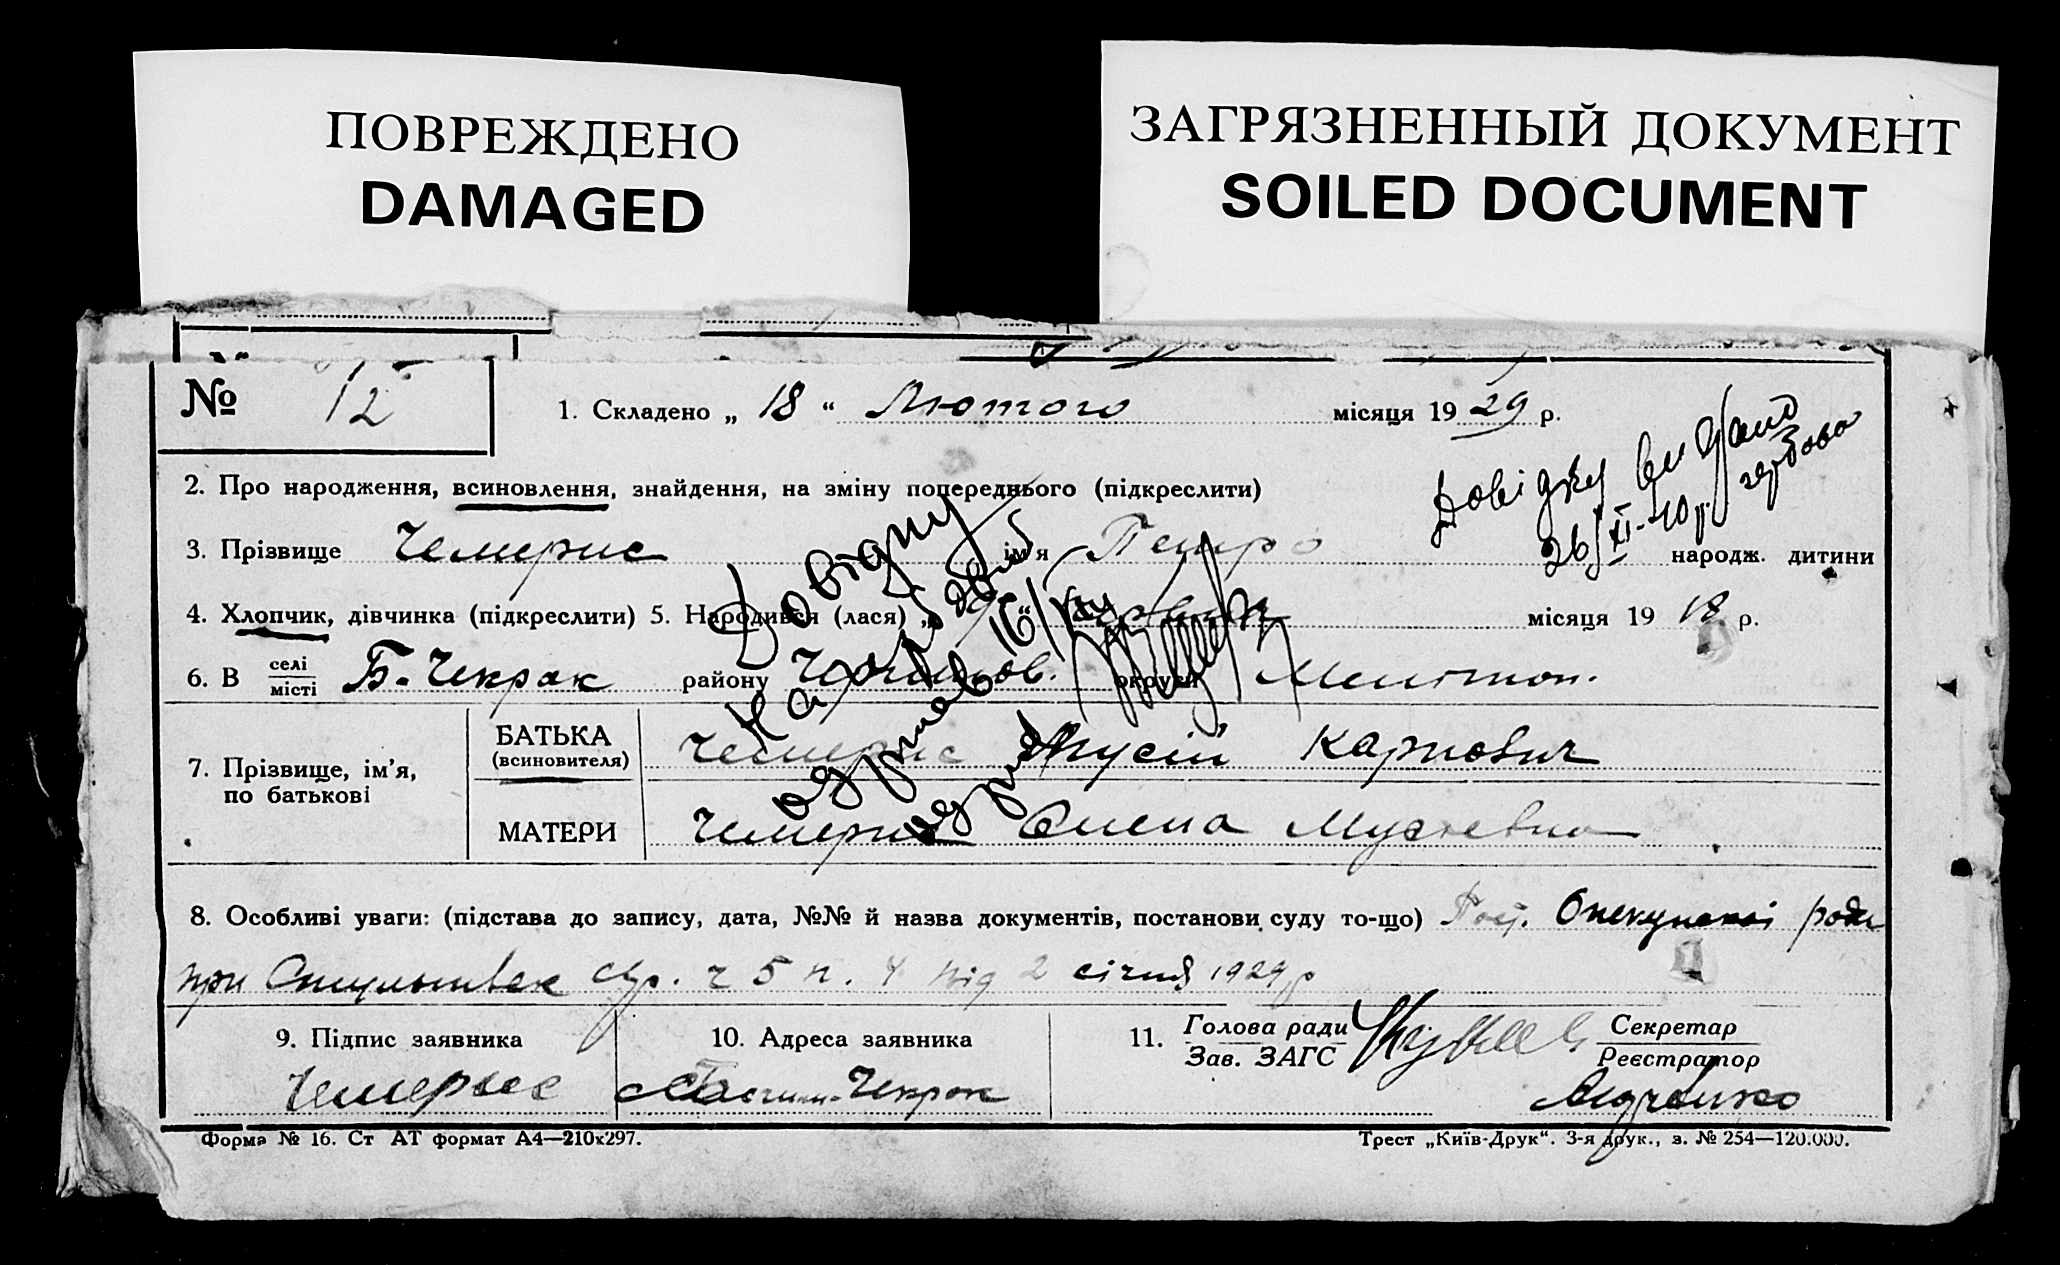 ПОВРЕЖДЕНО
DAMAGED
ЗАГРЯЗНЕННЫЙ ДОКУМЕНТ
SOILED DOCUMENT
№ 12
1. Складено „ 18 “ Лютого місяця 19 29 р.
Довідку видано
26/XI-40 р.
2. Про народження, всиновлення, знайдення, на зміну попереднього (підкреслити)
3. Прізвище Чемерис ім'я Петро народж. дитини
4. Хлопчик, дівчинка (підкреслити) 5. Народився (лася) „ місяця 19 18 р.
6. В селі місті Б-Чекрак району округи
7. Прізвище, ім'я, по батькові
БАТЬКА (всиновителя) Чемерис Мусій Карпович
МАТЕРИ Чемерис Олена Мусіевна
8. Особливі уваги: (підстава до запису, дата, №№ й назва документів, постанови суду то-що) Пост. Опекунської ради
при ч 5 п. 4 від 2 січня 1929 р
9. Підпис заявника
Чемерис
10. Адреса заявника
Чекрак
11. Голова ради
Зав. ЗАГС
Секретар
Реєстратор
Форма № 16. Ст АТ формат А4—210х297.
Трест „Київ-Друк“. 3-я друк., з. № 254—120.000.